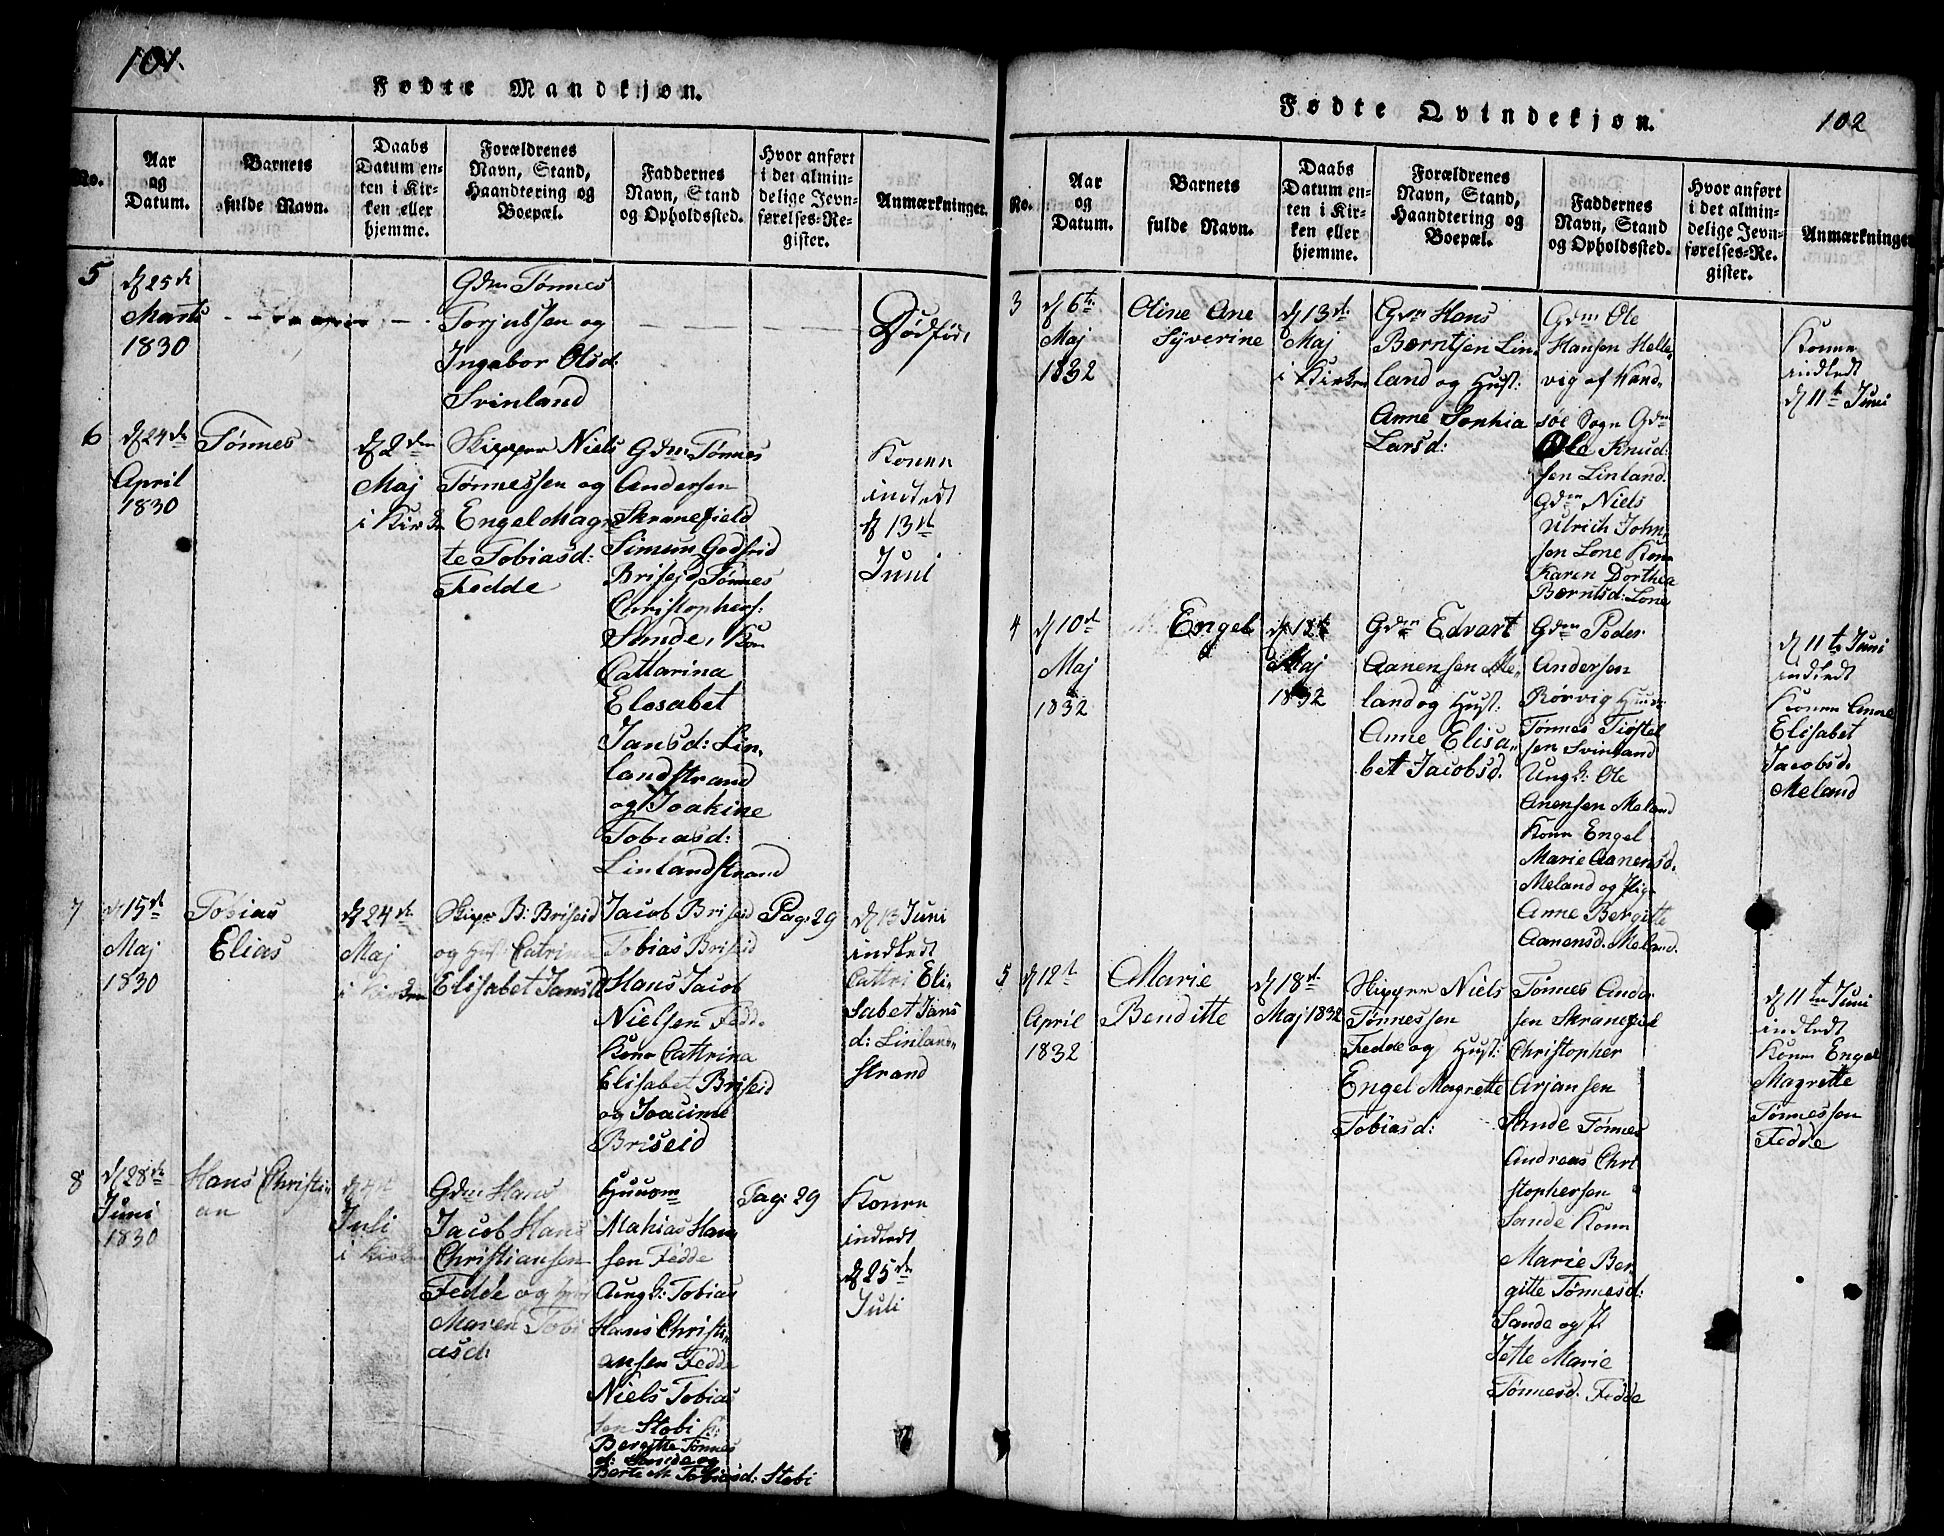 101.
Fødte Mandekjøn.
No.
Aar
og
Datum.
Barnets
fulde Navn.
Daabs
Datum en-
ten i Kir-
ken eller
hjemme.
Forældrenes
Navn, Stand,
Haandtering og
Boepæl.
Faddernes
Navn, Stand
og Opholdssted.
Hvor anført
i det almin-
delige Jevn-
førelses-Re-
gister.
Anmærkninger.
5
d 25de
Marts
1830
Gdm Tønnes
Torjussen og
Ingebor Olsd:
Svinland
Dødfødt
6
d 24de
April
1830
Tønnes
d 2den
Maj
i Kirken
Skipper Niels
Tønnessen og
Engel Magret
te Tobiasd:
Fedde
Gdm Tønnes
Andersen
Skranefield
Simeun Godfrid
Brisejd Tønnes
Christophers:
Sande, Kon
Cattarina
Elesabet
Jansd: Lin,
landstrand
og Joakine
Tobiasd:
Linlandstrand
Konen
indledt
d 13de
Juni
7
d 15de
Maj
1830
Tobias
Elias
d 24de
Maj
i Kirken
Skipr B: Briseid
og Hust: Catrina
Elisabet Jansd
Jacob Briseid
Tobias Briseid
Hans Jacob
Nielsen Fedd.
Kone Cattrina
Elisabet Briseid
og Joacime
Briseid
Pag: 29
d 13 Juni
indledt
Cattri Eli-
sabet Jans
d: Linland-
strand
8
d 28de
Juni
1830
Hans Christi-
an
Juli
i Kirken
Gdm Hans
Jacob Hans
Christiansen
Fedde og Hust
Maren Tobi
asd:
Huusm
Mathias Han
sen Fedde
Ungk: Tobias
Hans Christi-
ansen Fedde
Niels Tobias
sen Stobi K:
Bergitte Tønnes
d: Sande og
Berte M. Tobiasd: Stobi
Pag: 29
Konen
indledt
d 25de
Juli
102
Fødte Qvindekjøn.
No.
Aar
og
Datum.
Barnets
fulde Navn.
Daabs
Datum en-
ten i Kir-
ken eller
hjemme.
Forældrenes
Navn, Stand,
Haandtering og
Boepæl.
Faddernes
Navn, Stand
og Opholdssted.
Hvor anført
i det almin-
delige Jevn-
førelses-Re-
gister.
Anmærkninger
3
d 6te
Maj
1832
Oline Ane
Syverine
d 13de
Maj
i Kirken
Gdm Hans
Berntsen Lin,
land og Hust:
Anne Sophia
Larsd:
Gdm Ole
Hansen Helle,
vig af Hand,
søe Sogn Gdm
Ole Knud:
sen Linland.
Gdm Niels
Ulrich John,
sen Lone Kon
Karen Dorthea
Berntsd: Lone
Konen
indledt
d 11te Juni
4
d 10de
Maj
1832
Engel
d 18de
Maj
1832
Gdm Edvart
Aanensen Me,
land og Hust:
Anne Elisa,
bet Jacobsd.
Gdm Peder
Andersen
Rørvig Huusm
Tønnes Tiøstel
sen Svinland
Ungk: Ole
Anensen Meland
Konn Engel
Marie Aanensd.
Meland og Pige
Anne Bergitte
Aanensd. Meland.
d 11te Juni
indledt
Konen Anne
Elisabet
Jacobsd.
Meland
5
d 12te
April
1832
Marie
Benditte
d 18de
Maj 1832
Skipper Niels
Tønnessen
Fedde og Hust:
Engel Magrette
Tobiasd:
Tønnes Ander
sen Skranefiel
Christopher
Arjansen
Sande Tønnes
Andreas Chri
stophersen
Sande Konn
Marie Ber
gitte Tønnesd:
Sande og P
Jette Marie
Tønnesd. Fedde
d 11te Juni
indledt
Konen Engel
Magrette
Tønnessen
Fedde